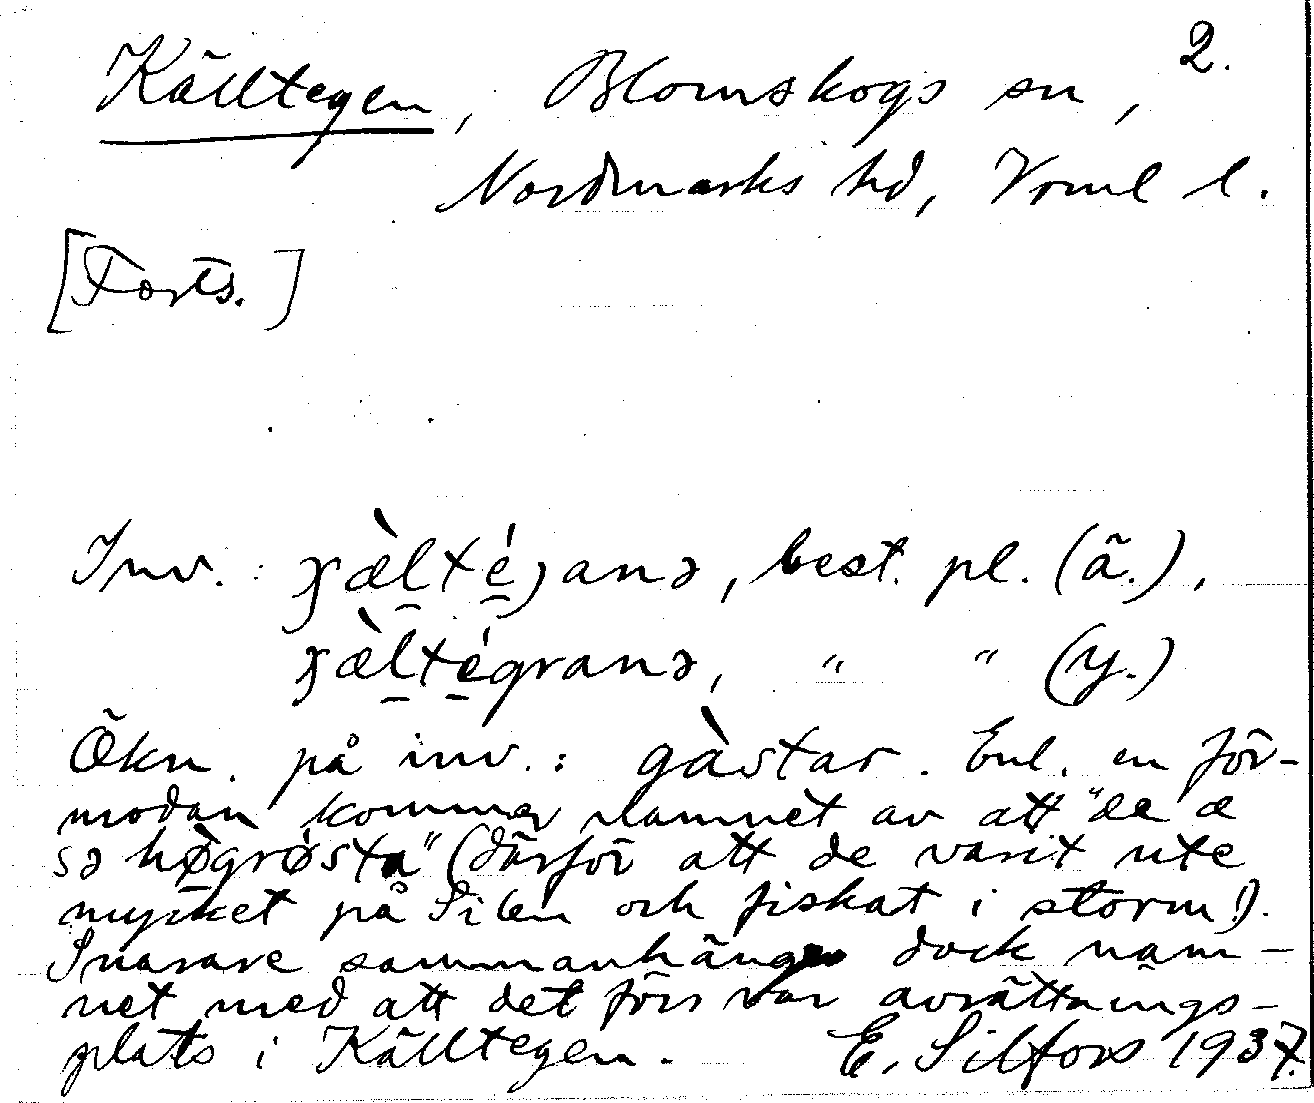 2.
Källtegen, Blomskogs sn,
Nordmarks hd, Vrml l.
[Forts.]
Inv.: best. pl. (ä.),
" " (y.)
Ökn. på inv.: gàstar. Enl. en för-
modan kommer namnet av att "de æ
sə høgrøsta" (därför att de varit ute
mycket på Silen och fiskat i storm!).
Snarare sammanhänger dock nam-
net med att det förr var avrättnings-
plats i Källtegen. E. Silfors 1937.